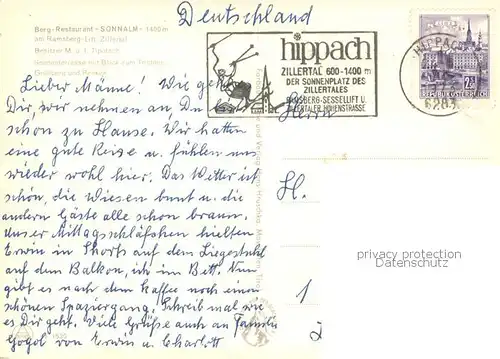 Deutschland
Berg-Restaurant - SONNALM - 1400 m
am Ramsberg im Zillertal
Besitzer M. u. I.
hippach
ZILLERTAL 600-1400 m
DER SONNENPLATZ DES
ZILLERTALES
RAMSBERG-SESSELLIFT U.
ZILLERTALER HÖHENSTRASSE
HIPPACH
6283
REPUBLIK ÖSTERREICH
Lieber Männe! Wie geht
Dir, wir nehmen an Du bist
schon zu Hause. Wir hatten
eine gute Reise u. fühlen uns
wieder wohl hier. Das Wetter ist
schön, die Wiesen bunt u. die
andern Gäste alle schon braun.
Unser Mittagsschläfchen hielten
Erwin in Shorts auf dem Liegestuhl
auf dem Balkon, ich im Bett. Nun
gibt es nach dem Kaffee noch einen
schönen Spaziergang. Schreib mal wie
es Dir geht. Viele Grüße auch an Familie
Gogol von Erwin u. Charlott
Herrn
H.
1
privacy protection
Datenschutz